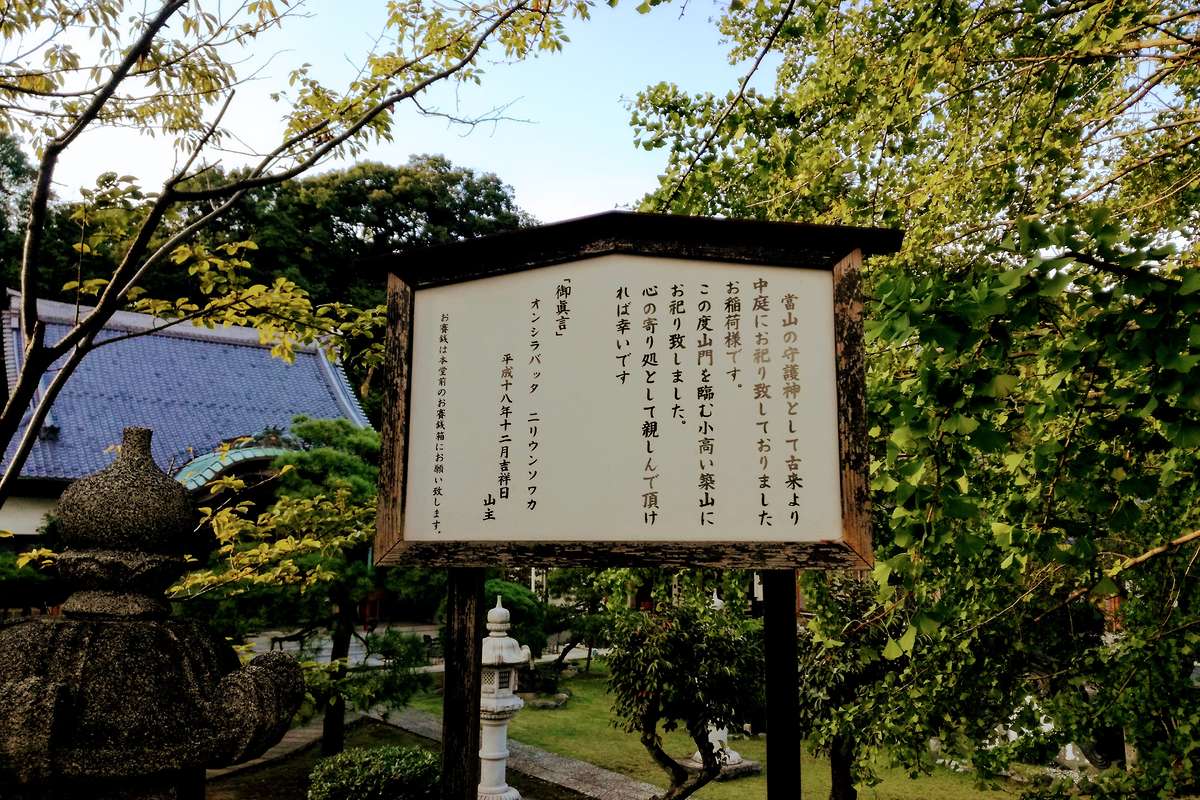 當山の守護神として古来より
中庭にお祀り致しておりました
お稲荷様です。
この度山門を臨む小高い築山に
お祀り致しました。
心の寄り処として親しんで頂け
れば幸いです
「御眞言」
オンシラバッタ ニリウンソワカ
平成十八年十二月吉祥日
山主
お賽銭は本堂前のお賽銭箱にお願い致します。